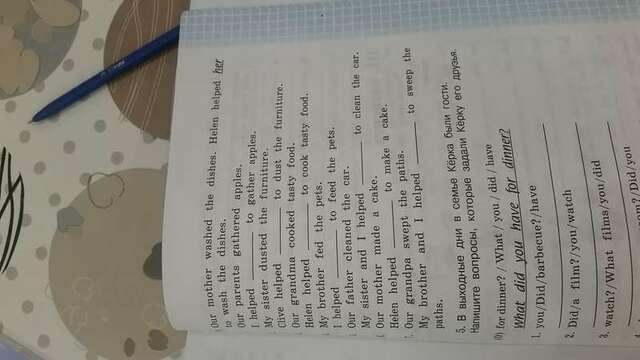 Our mother washed the dishes. Helen helped her
to wash the dishes.
Our parents gathered apples.
I helped ______ to gather apples.
My sister dusted the furniture.
Clive helped ______ to dust the furniture.
Our grandma cooked tasty food.
Helen helped ______ to cook tasty food.
My brother fed the pets.
I helped ______ to feed the pets.
Our father cleaned the car.
My sister and I helped ______ to clean the car.
Our mother made a cake.
Helen helped ______ to make a cake.
Our grandpa swept the paths.
My brother and I helped ______ to sweep the
paths.
5. В выходные дни в семье Кёрка были гости.
Напишите вопросы, которые задали Кёрку его друзья.
0) for dinner? / What / you / did / have
What did you have for dinner?
1. you/Did/barbecue?/have
2. Did/a film?/you/watch
3. watch?/What films/you/did
?/Did/you